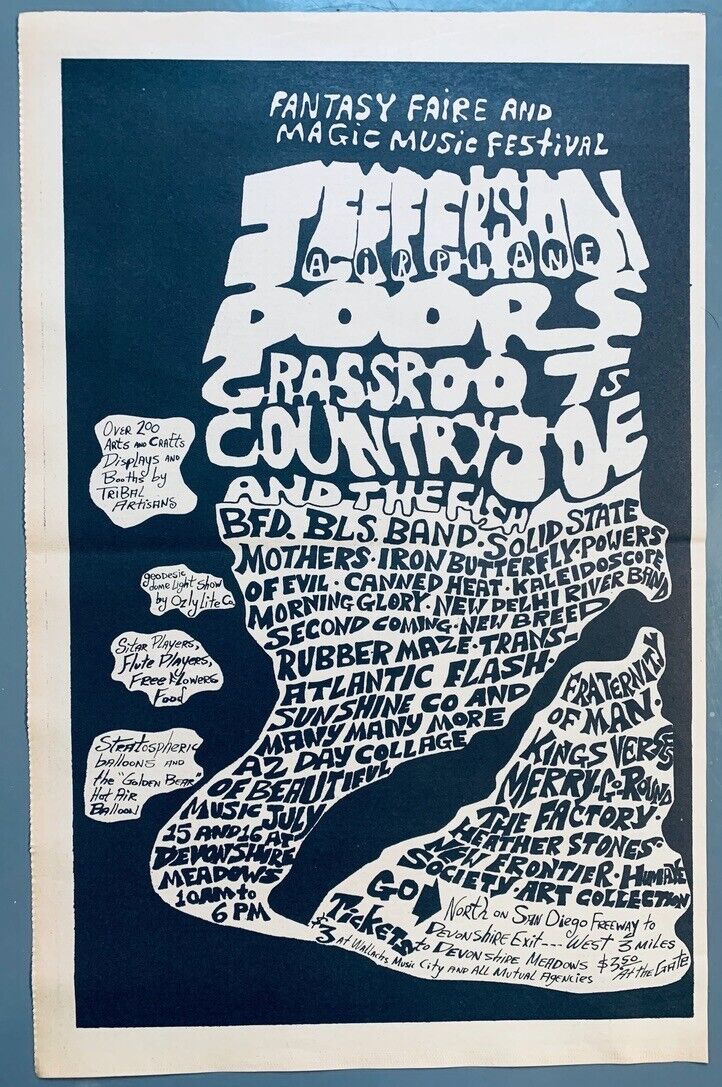 FANTASY FAIRE AND
MAGIC MUSIC FESTIVAL
JEFFERSON
AIRPLANE
DOORS
GRASSROOTS
COUNTRY JOE
AND THE FISH
BFD. BLS. BAND. SOLID STATE
MOTHERS · IRON BUTTERFLY · POWERS
OF EVIL · CANNED HEAT · KALEIDOSCOPE
MORNING GLORY · NEW DELHI RIVER BAND
SECOND COMING · NEW BREED
RUBBER MAZE · TRANS-
ATLANTIC FLASH ·
SUNSHINE CO AND
MANY MANY MORE
A 2 DAY COLLAGE
OF BEAUTIFUL
MUSIC JULY
15 AND 16 AT
DEVONSHIRE
MEADOWS
10AM to
6 PM
OVER 200
ARTS AND CRAFTS
DISPLAYS AND
BOOTHS by
TRIBAL
ARTISANS
geodesic
dome light show
by OzlyLite Co.
SITAR PLAYERS,
FLUTE PLAYERS,
FREE FLOWERS
Food
STRATOSPHERIC
balloons AND
the "GOLDEN BEAR"
Hot AIR
BALLOON
FRATERNITY
OF MAN ·
KINGS VERSES
MERRY-GO-ROUND
THE FACTORY ·
HEATHER STONES ·
NEW FRONTIER · HUMANE
SOCIETY · ART COLLECTION
GO NORTH ON SAN DIEGO FREEWAY to
DEVONSHIRE EXIT --- WEST 3 MILES
to DEVONSHIRE MEADOWS
TICKETS
$3 AT WALLACHS MUSIC CITY AND ALL MUTUAL AGENCIES
$3.50
AT the GATE